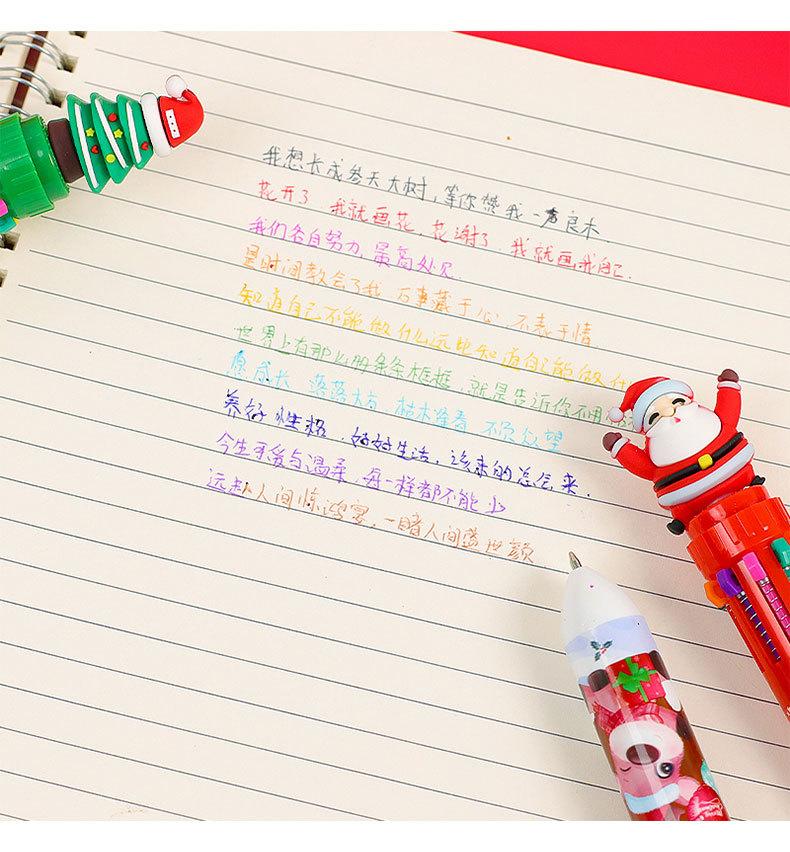 我想长成参天大树，等你赞我一声良木.
花开了 我就画花，花谢了，我就画我自己.
我们各自努力 最高处见
是时间教会了我 万事藏于心 不表于情
知道自己不能做什么远比知道自己能做什
世界上有那么多的条条框框，就是告诉你不用
成长 落落大方，枯木逢春 不负众望
养好性格，好好生活，该来的总会来.
今生可爱与温柔，每一样都不能少
远赴人间惊鸿宴，一睹人间盛世颜